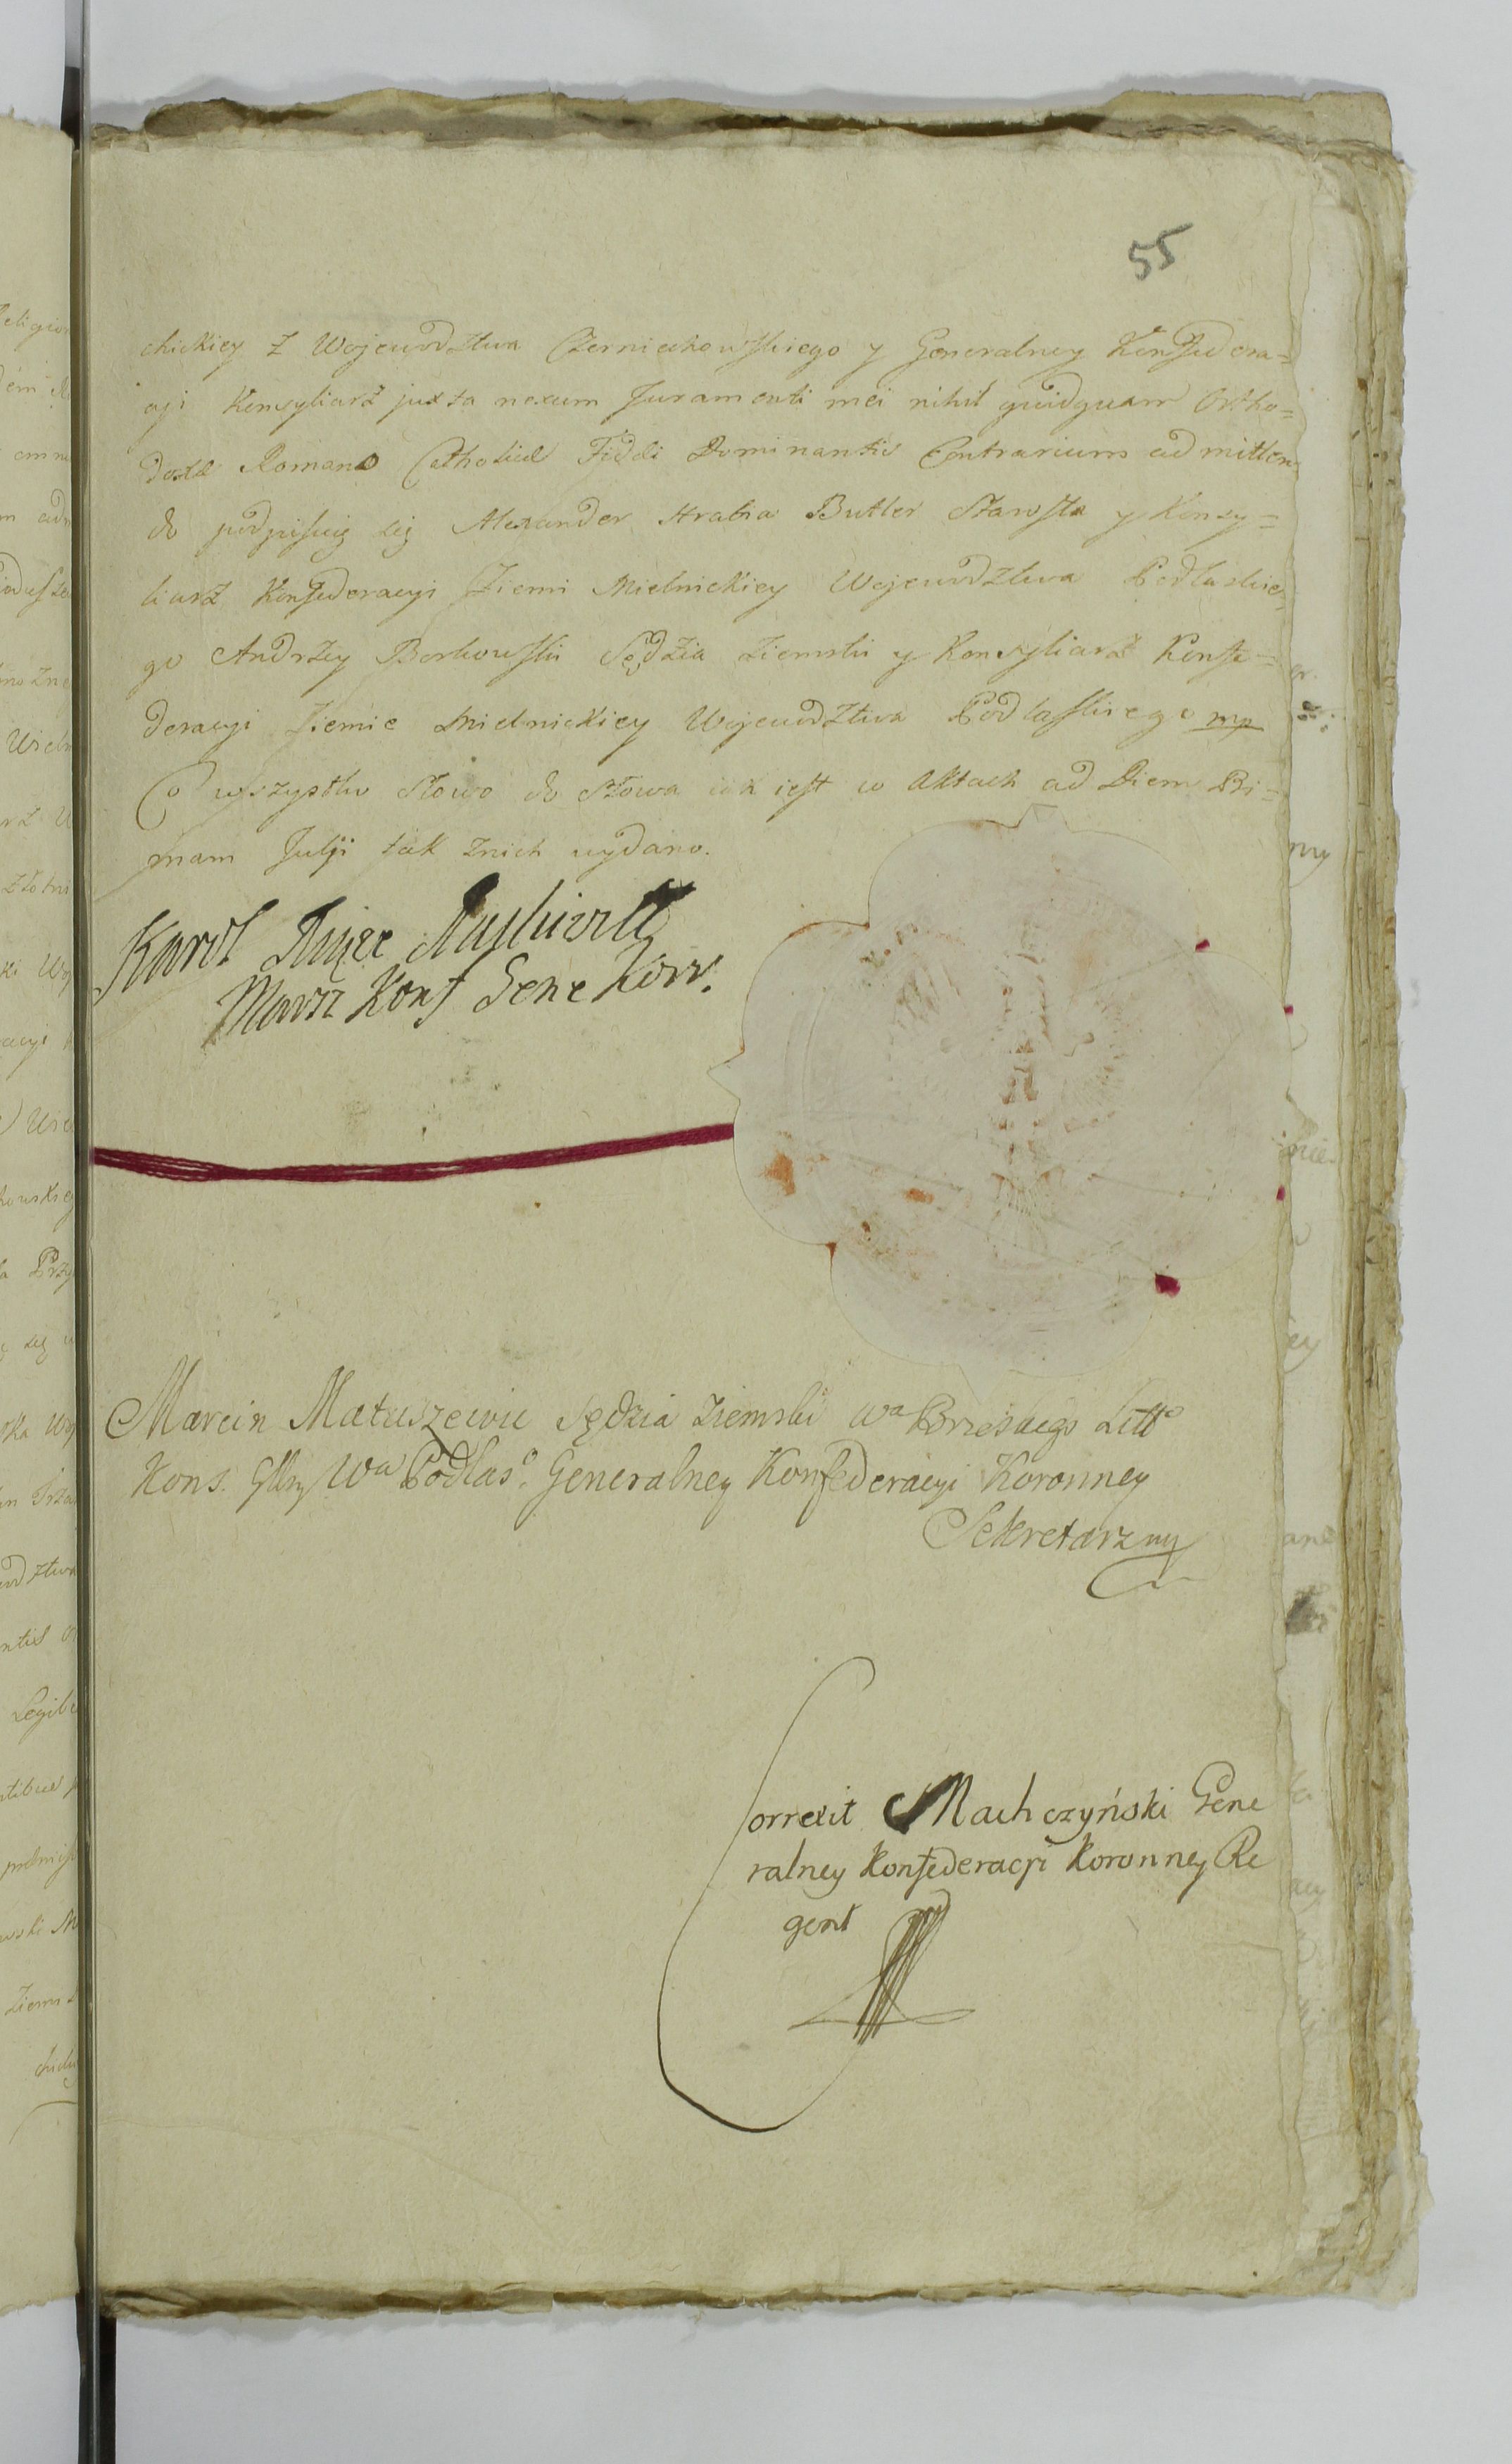 55
chickiey z Wojewodztwa Czerniechowskiego y Generalney Konfedera=
cyi Konsyliarz juxta nexum Juramenti mei nihil quidquam Ortho=
doxæ Romano Catholicæ Fidei Dominantis Contrarium admitten
do podpisuię się Alexander Hrabia Butler Starosta y Konsy=
liarz Konfederacyi Ziemi Mielnickiey Wojewodztwa Podlaskie=
go Andrzey Borkowski Sędzia Ziemski y Konsyliarz Konfe=
deracyi Ziemie Mielnickiey Wojewodztwa Podlaskiego mp
Co wszystko słowo do słowa iak iest w Aktach ad Diem Pri=
mam Julij tak znich wydano.
Karol Xiąże Radziwiłł
Marsz Konf Gene Korr.
Marcin Matuszewic Sędzia Ziemski Wa Brzesciego Litto
Kons. Gllny Wa Podlaso. Generalney Konfederacyi Koronney
Sekretarz mp
Correxit Machczyński Gene
ralney Konfederacyi Koronney Re
gent